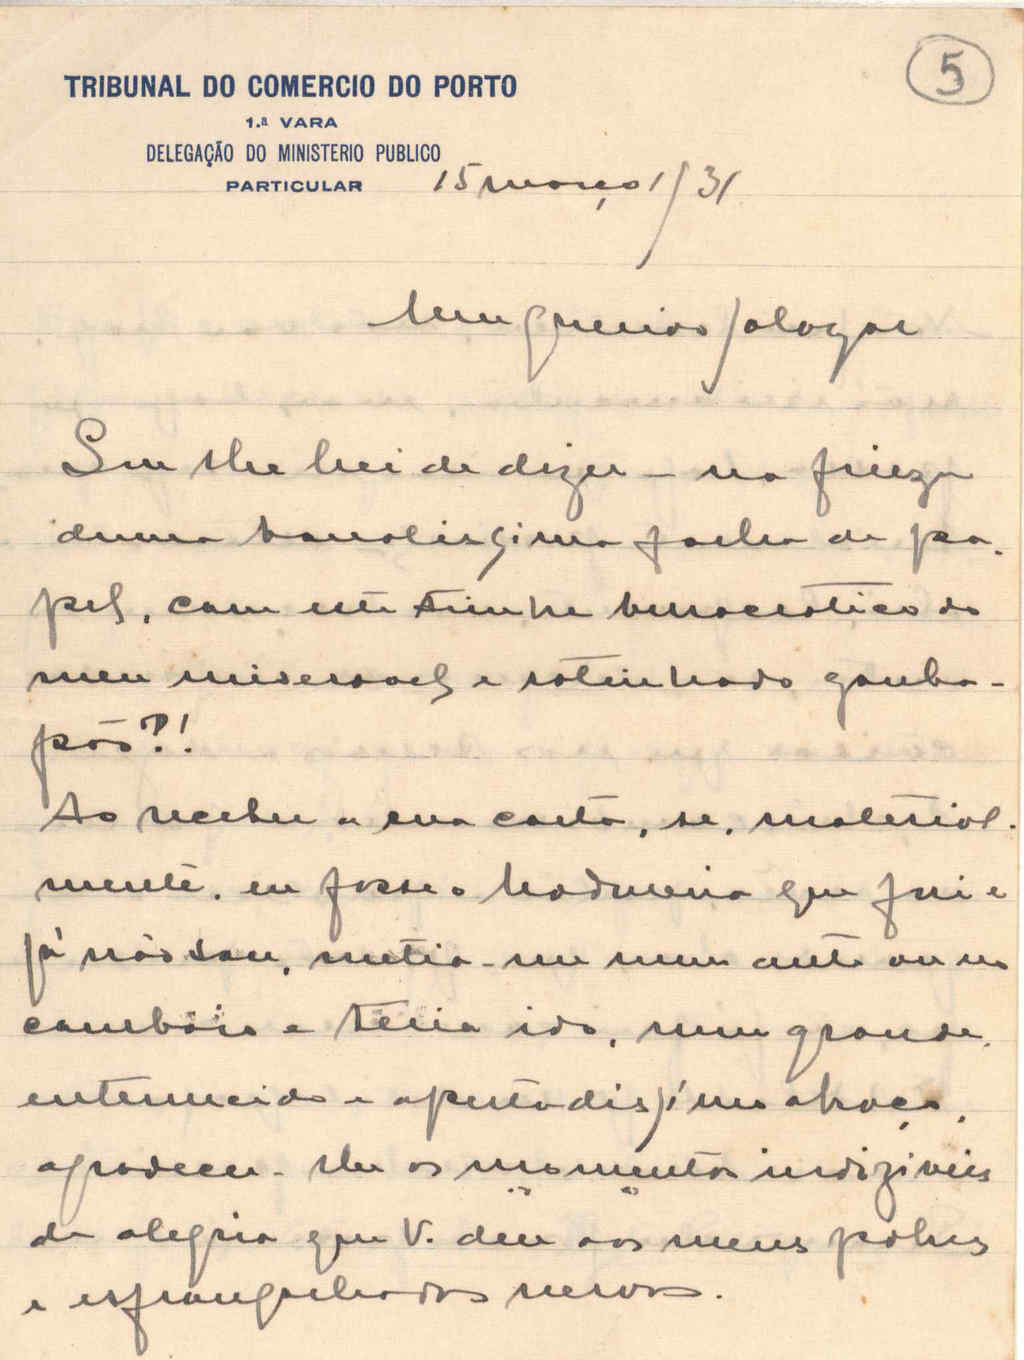 5
TRIBUNAL DO COMERCIO DO PORTO
1.ª VARA
DELEGAÇÃO DO MINISTERIO PUBLICO
PARTICULAR 15 março / 31
Meu querido Salazar
Que lhe hei de dizer - na frieza
duma banalissima folha de pa-
pel, com este timbre burocrático do
meu miseravel e rotinhado ganha-
pão?!
Ao receber a sua carta, se, material-
mente, eu fosse o que fui e
já não sou, metia-me num auto ou no
comboio e teria ido, num grande,
enternecido e apertadissimo abraço,
agradecer-lhe os momentos indiziveis
de alegria que V. deu aos meus pobres
e esfrangalhados nervos.